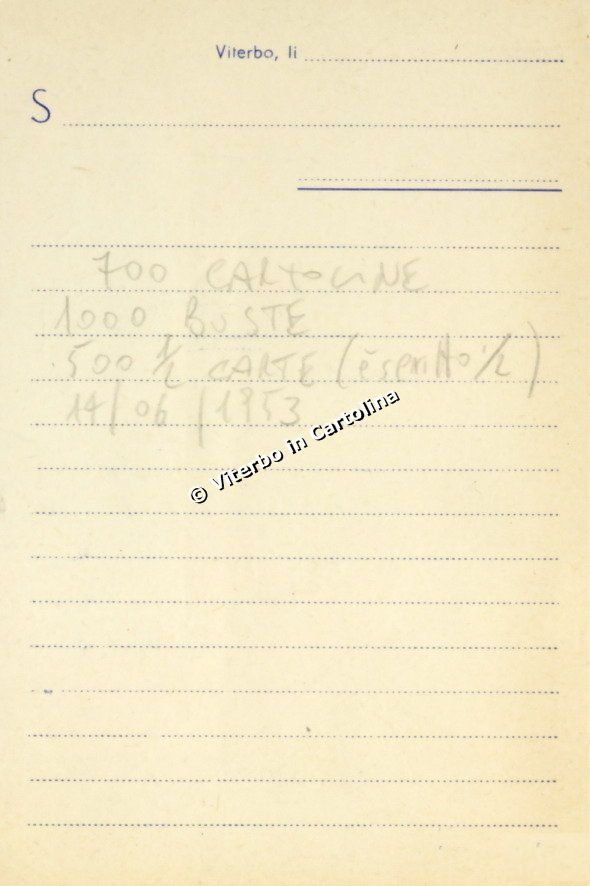 Viterbo, li
S
700 CARTOLINE
1000 BUSTE
500 1/2 CARTE (è scritto 1/2)
14/06/1953
© Viterbo in Cartolina